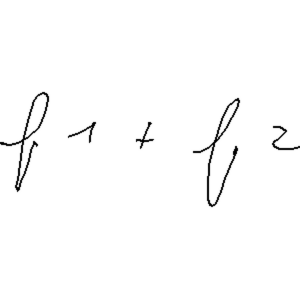 f1 + f2